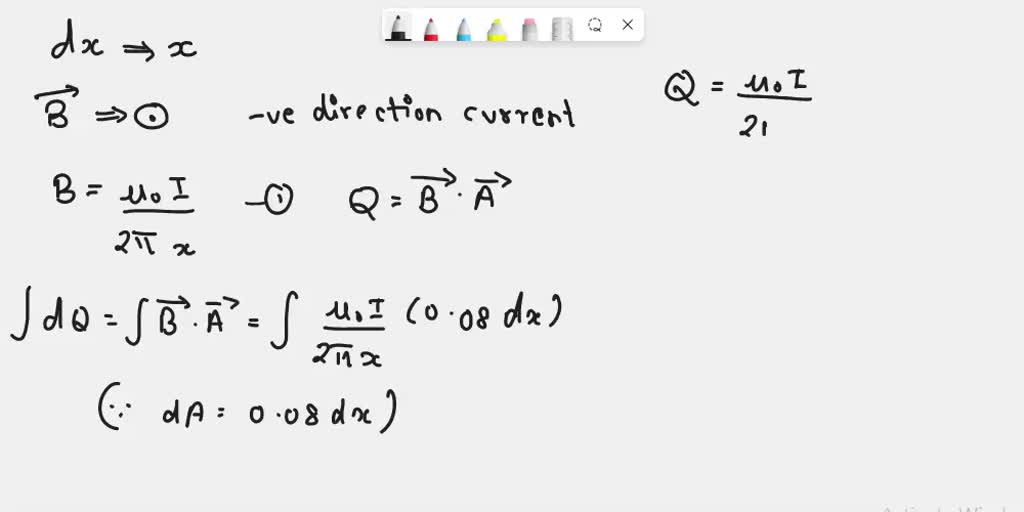 dx ⇒ x
B⃗ ⇒ ⊙ -ve direction current
B = μ₀ I / 2π x -① Q = B⃗ · A⃗
∫ dQ = ∫ B⃗ · A⃗ = ∫ μ₀ I / 2π x (0.08 dx)
(∵ dA = 0.08 dx)
Q = μ₀ I / 2